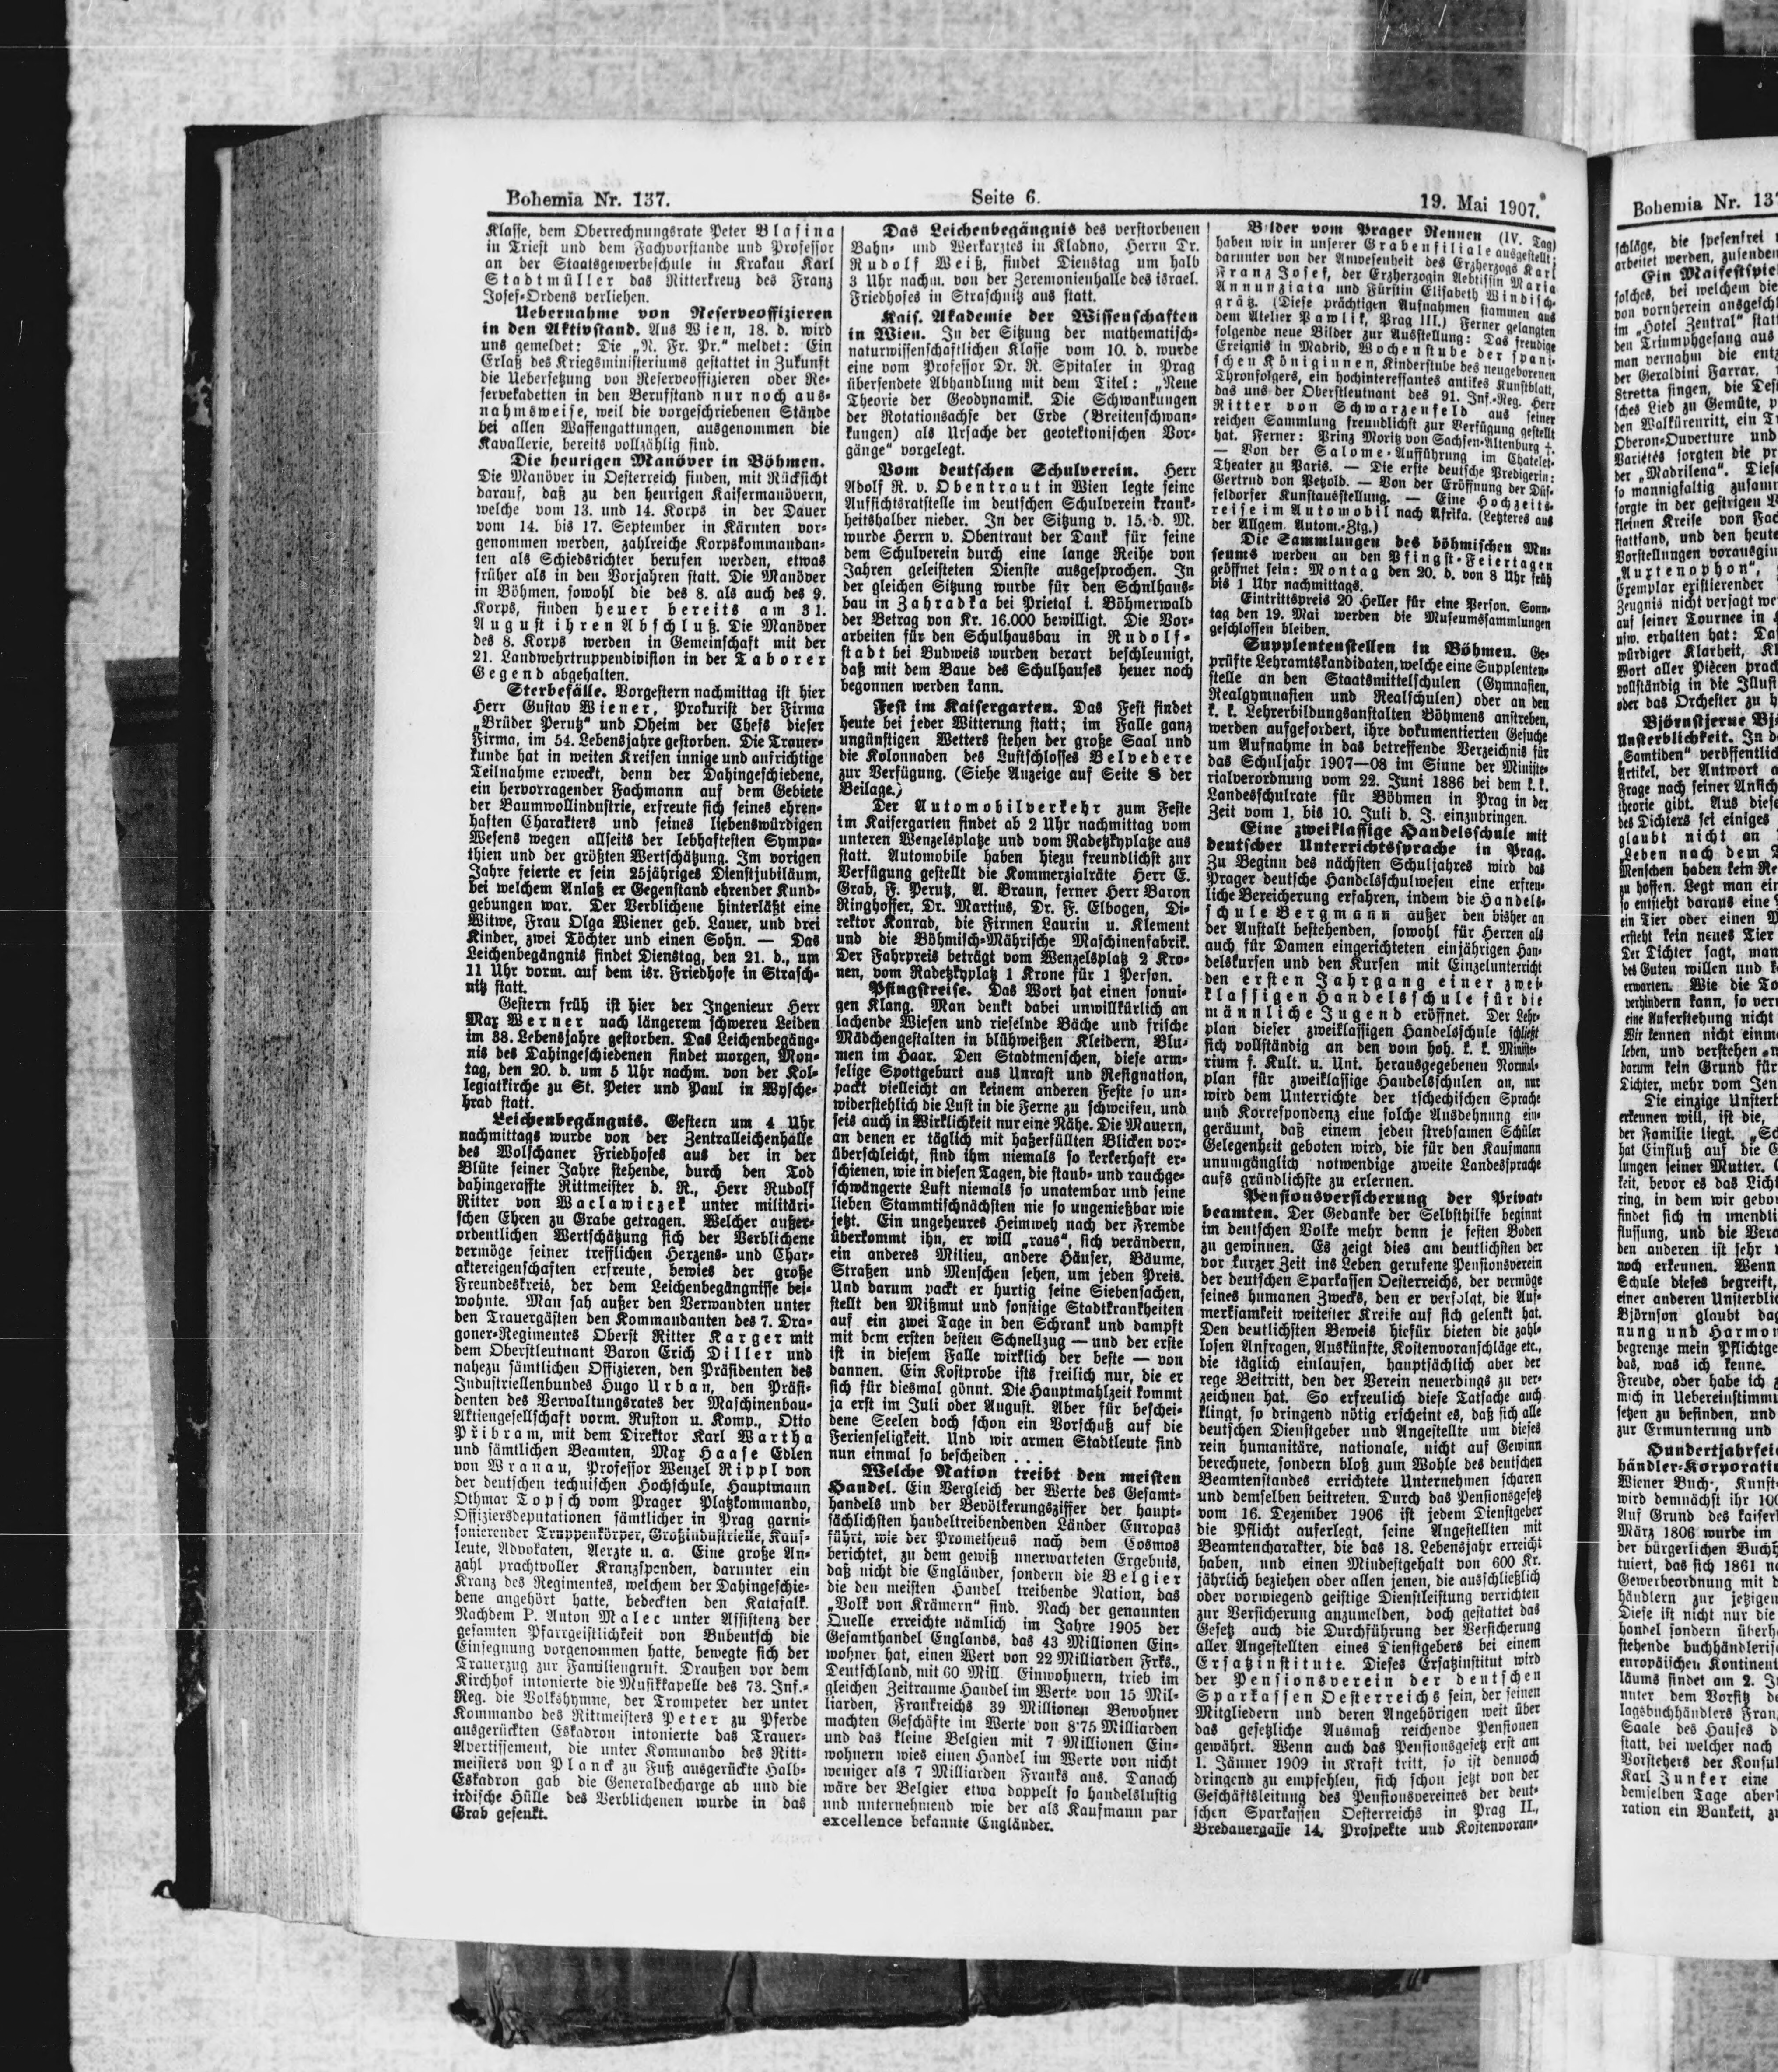 Bohemia Nr. 137.
Seite 6.
19. Mai 1907.
Klasse, dem Oberrechnungsrate Peter Blasina
in Triest und dem Fachvorstande und Professor
an der Staatsgewerbeschule in Krakau Karl
Stadtmüller das Ritterkreuz des Franz
Josef-Ordens verliehen.
Uebernahme von Reserveoffizieren
in den Aktivstand. Aus Wien, 18. d. wird
uns gemeldet: Die „N. Fr. Pr.“ meldet: Ein
Erlaß des Kriegsministeriums gestattet in Zukunft
die Uebersetzung von Reserveoffizieren oder Re-
servekadetten in den Berufstand nur noch aus-
nahmsweise, weil die vorgeschriebenen Stände
bei allen Waffengattungen, ausgenommen die
Kavallerie, bereits vollzählig sind.
Die heurigen Manöver in Böhmen.
Die Manöver in Oesterreich finden, mit Rücksicht
darauf, daß zu den heurigen Kaisermanövern,
welche vom 13. und 14. Korps in der Dauer
vom 14. bis 17. September in Kärnten vor-
genommen werden, zahlreiche Korpskommandan-
ten als Schiedsrichter berufen werden, etwas
früher als in den Vorjahren statt. Die Manöver
in Böhmen, sowohl die des 8. als auch des 9.
Korps, finden heuer bereits am 31.
August ihren Abschluß. Die Manöver
des 8. Korps werden in Gemeinschaft mit der
21. Landwehrtruppendivision in der Taborer
Gegend abgehalten.
Sterbefälle. Vorgestern nachmittag ist hier
Herr Gustav Wiener, Prokurist der Firma
„Brüder Perutz“ und Oheim der Chefs dieser
Firma, im 54. Lebensjahre gestorben. Die Trauer-
kunde hat in weiten Kreisen innige und aufrichtige
Teilnahme erweckt, denn der Dahingeschiedene,
ein hervorragender Fachmann auf dem Gebiete
der Baumwollindustrie, erfreute sich seines ehren-
haften Charakters und seines liebenswürdigen
Wesens wegen allseits der lebhaftesten Sympa-
thien und der größten Wertschätzung. Im vorigen
Jahre feierte er sein 25jähriges Dienstjubiläum,
bei welchem Anlaß er Gegenstand ehrender Kund-
gebungen war. Der Verblichene hinterläßt eine
Witwe, Frau Olga Wiener geb. Lauer, und drei
Kinder, zwei Töchter und einen Sohn. — Das
Leichenbegängnis findet Dienstag, den 21. d., um
11 Uhr vorm. auf dem isr. Friedhofe in Strasch-
nitz statt.
Gestern früh ist hier der Ingenieur Herr
Max Werner nach längerem schweren Leiden
im 38. Lebensjahre gestorben. Das Leichenbegäng-
nis des Dahingeschiedenen findet morgen, Mon-
tag, den 20. d. um 5 Uhr nachm. von der Kol-
legiatkirche zu St. Peter und Paul in Wysche-
hrad statt.
Leichenbegängnis. Gestern um 4 Uhr
nachmittags wurde von der Zentralleichenhalle
des Wolschaner Friedhofes aus der in der
Blüte seiner Jahre stehende, durch den Tod
dahingeraffte Rittmeister d. R., Herr Rudolf
Ritter von Waclawiczek unter militäri-
schen Ehren zu Grabe getragen. Welcher außer-
ordentlichen Wertschätzung sich der Verblichene
vermöge seiner trefflichen Herzens- und Char-
aktereigenschaften erfreute, bewies der große
Freundeskreis, der dem Leichenbegängnisse bei-
wohnte. Man sah außer den Verwandten unter
den Trauergästen den Kommandanten des 7. Dra-
goner-Regimentes Oberst Ritter Karger mit
dem Oberstleutnant Baron Erich Diller und
nahezu sämtlichen Offizieren, den Präsidenten des
Industriellenbundes Hugo Urban, den Präsi-
denten des Verwaltungsrates der Maschinenbau-
Aktiengesellschaft vorm. Ruston u. Komp., Otto
Přibram, mit dem Direktor Karl Wartha
und sämtlichen Beamten, Max Haase Edlen
von Wranau, Professor Wenzel Rippl von
der deutschen technischen Hochschule, Hauptmann
Othmar Topsch vom Prager Platzkommando,
Offiziersdeputationen sämtlicher in Prag garni-
sonierender Truppenkörper, Großindustrielle, Kauf-
leute, Advokaten, Aerzte u. a. Eine große An-
zahl prachtvoller Kranzspenden, darunter ein
Kranz des Regimentes, welchem der Dahingeschie-
dene angehört hatte, bedeckten den Katafalk.
Nachdem P. Anton Malec unter Assistenz der
gesamten Pfarrgeistlichkeit von Bubentsch die
Einsegnung vorgenommen hatte, bewegte sich der
Trauerzug zur Familiengruft. Draußen vor dem
Kirchhof intonierte die Musikkapelle des 73. Inf.-
Reg. die Volkshymne, der Trompeter der unter
Kommando des Rittmeisters Peter zu Pferde
ausgerückten Eskadron intonierte das Trauer-
Avertissement, die unter Kommando des Ritt-
meisters von Planck zu Fuß ausgerückte Halb-
Eskadron gab die Generaldecharge ab und die
irdische Hülle des Verblichenen wurde in das
Grab gesenkt.
Das Leichenbegängnis des verstorbenen
Bahn- und Werkarztes in Kladno, Herrn Dr.
Rudolf Weiß, findet Dienstag um halb
3 Uhr nachm. von der Zeremonienhalle des israel.
Friedhofes in Straschnitz aus statt.
Kais. Akademie der Wissenschaften
in Wien. In der Sitzung der mathematisch-
naturwissenschaftlichen Klasse vom 10. d. wurde
eine vom Professor Dr. R. Spitaler in Prag
übersendete Abhandlung mit dem Titel: „Neue
Theorie der Geodynamik. Die Schwankungen
der Rotationsachse der Erde (Breitenschwan-
kungen) als Ursache der geotektonischen Vor-
gänge“ vorgelegt.
Vom deutschen Schulverein. Herr
Adolf R. v. Obentraut in Wien legte seine
Aufsichtsratstelle im deutschen Schulverein krank-
heitshalber nieder. In der Sitzung v. 15. d. M.
wurde Herrn v. Obentraut der Dank für seine
dem Schulverein durch eine lange Reihe von
Jahren geleisteten Dienste ausgesprochen. In
der gleichen Sitzung wurde für den Schulhaus-
bau in Zahradka bei Prietal i. Böhmerwald
der Betrag von Kr. 16.000 bewilligt. Die Vor-
arbeiten für den Schulhausbau in Rudolf-
stadt bei Budweis wurden derart beschleunigt,
daß mit dem Baue des Schulhauses heuer noch
begonnen werden kann.
Fest im Kaisergarten. Das Fest findet
heute bei jeder Witterung statt; im Falle ganz
ungünstigen Wetters stehen der große Saal und
die Kolonnaden des Lustschlosses Belvedere
zur Verfügung. (Siehe Anzeige auf Seite 8 der
Beilage.)
Der Automobilverkehr zum Feste
im Kaisergarten findet ab 2 Uhr nachmittag vom
unteren Wenzelsplatze und vom Radetzkyplatze aus
statt. Automobile haben hiezu freundlichst zur
Verfügung gestellt die Kommerzialräte Herr E.
Grab, F. Perutz, A. Braun, ferner Herr Baron
Ringhoffer, Dr. Martius, Dr. F. Elbogen, Di-
rektor Konrad, die Firmen Laurin u. Klement
und die Böhmisch-Mährische Maschinenfabrik.
Der Fahrpreis beträgt vom Wenzelsplatz 2 Kro-
nen, vom Radetzkyplatz 1 Krone für 1 Person.
Pfingstreise. Das Wort hat einen sonni-
gen Klang. Man denkt dabei unwillkürlich an
lachende Wiesen und rieselnde Bäche und frische
Mädchengestalten in blühweißen Kleidern, Blu-
men im Haar. Den Stadtmenschen, diese arm-
selige Spottgeburt aus Unrast und Resignation,
packt vielleicht an keinem anderen Feste so un-
widerstehlich die Lust in die Ferne zu schweifen, und
seis auch in Wirklichkeit nur eine Nähe. Die Mauern,
an denen er täglich mit haßerfüllten Blicken vor-
überschleicht, sind ihm niemals so kerkerhaft er-
schienen, wie in diesen Tagen, die staub- und rauchge-
schwängerte Luft niemals so unatembar und seine
lieben Stammtischnächsten nie so ungenießbar wie
jetzt. Ein ungeheures Heimweh nach der Fremde
überkommt ihn, er will „raus“, sich verändern,
ein anderes Milieu, andere Häuser, Bäume,
Straßen und Menschen sehen, um jeden Preis.
Und darum packt er hurtig seine Siebensachen,
stellt den Mißmut und sonstige Stadtkrankheiten
auf ein zwei Tage in den Schrank und dampft
mit dem ersten besten Schnellzug — und der erste
ist in diesem Falle wirklich der beste — von
dannen. Ein Kostprobe ists freilich nur, die er
sich für diesmal gönnt. Die Hauptmahlzeit kommt
ja erst im Juli oder August. Aber für beschei-
dene Seelen doch schon ein Vorschuß auf die
Ferienseligkeit. Und wir armen Stadtleute sind
nun einmal so bescheiden . . .
Welche Nation treibt den meisten
Handel. Ein Vergleich der Werte des Gesamt-
handels und der Bevölkerungsziffer der haupt-
sächlichsten handeltreibendenden Länder Europas
führt, wie der Prometheus nach dem Cosmos
berichtet, zu dem gewiß unerwarteten Ergebnis,
daß nicht die Engländer, sondern die Belgier
die den meisten Handel treibende Nation, das
„Volk von Krämern“ sind. Nach der genannten
Quelle erreichte nämlich im Jahre 1905 der
Gesamthandel Englands, das 43 Millionen Ein-
wohner hat, einen Wert von 22 Milliarden Frks.,
Deutschland, mit 60 Mill. Einwohnern, trieb im
gleichen Zeitraume Handel im Werte von 15 Mil-
liarden, Frankreichs 39 Millionen Bewohner
machten Geschäfte im Werte von 8·75 Milliarden
und das kleine Belgien mit 7 Millionen Ein-
wohnern wies einen Handel im Werte von nicht
weniger als 7 Milliarden Franks aus. Danach
wäre der Belgier etwa doppelt so handelslustig
und unternehmend wie der als Kaufmann par
excellence bekannte Engländer.
Bilder vom Prager Rennen (IV. Tag)
haben wir in unserer Grabenfiliale ausgestellt;
darunter von der Anwesenheit des Erzherzogs Karl
Franz Josef, der Erzherzogin Aebtissin Maria
Annunziata und Fürstin Elisabeth Windisch-
grätz. (Diese prächtigen Aufnahmen stammen aus
dem Atelier Pawlik, Prag III.) Ferner gelangten
folgende neue Bilder zur Ausstellung: Das freudige
Ereignis in Madrid, Wochenstube der spani-
schen Königinnen, Kinderstube des neugeborenen
Thronfolgers, ein hochinteressantes antikes Kunstblatt,
das uns der Oberstleutnant des 91. Inf.-Reg. Herr
Ritter von Schwarzenfeld aus seiner
reichen Sammlung freundlichst zur Verfügung gestellt
hat. Ferner: Prinz Moritz von Sachsen-Altenburg †.
— Von der Salome-Aufführung im Chatelet-
Theater zu Paris. — Die erste deutsche Predigerin:
Gertrud von Petzold. — Von der Eröffnung der Düs-
seldorfer Kunstausstellung. — Eine Hochzeits-
reise im Automobil nach Afrika. (Letzteres aus
der Allgem. Autom.-Ztg.)
Die Sammlungen des böhmischen Mu-
seums werden an den Pfingst-Feiertagen
geöffnet sein: Montag den 20. d. von 8 Uhr früh
bis 1 Uhr nachmittags.
Eintrittspreis 20 Heller für eine Person. Sonn-
tag den 19. Mai werden die Museumssammlungen
geschlossen bleiben.
Supplentenstellen in Böhmen. Ge-
prüfte Lehramtskandidaten, welche eine Supplenten-
stelle an den Staatsmittelschulen (Gymnasien,
Realgymnasien und Realschulen) oder an den
k. k. Lehrerbildungsanstalten Böhmens anstreben,
werden aufgefordert, ihre dokumentierten Gesuche
um Aufnahme in das betreffende Verzeichnis für
das Schuljahr 1907—08 im Sinne der Ministe-
rialverordnung vom 22. Juni 1886 bei dem k. k.
Landesschulrate für Böhmen in Prag in der
Zeit vom 1. bis 10. Juli d. J. einzubringen.
Eine zweiklassige Handelsschule mit
deutscher Unterrichtssprache in Prag.
Zu Beginn des nächsten Schuljahres wird das
Prager deutsche Handelsschulwesen eine erfreu-
liche Bereicherung erfahren, indem die Handels-
schule Bergmann außer den bisher an
der Anstalt bestehenden, sowohl für Herren als
auch für Damen eingerichteten einjährigen Han-
delskursen und den Kursen mit Einzelunterricht
den ersten Jahrgang einer zwei-
klassigen Handelsschule für die
männliche Jugend eröffnet. Der Lehr-
plan dieser zweiklassigen Handelsschule schließt
sich vollständig an den vom hoh. k. k. Ministe-
rium f. Kult. u. Unt. herausgegebenen Normal-
plan für zweiklassige Handelsschulen an, nur
wird dem Unterrichte der tschechischen Sprache
und Korrespondenz eine solche Ausdehnung ein-
geräumt, daß einem jeden strebsamen Schüler
Gelegenheit geboten wird, die für den Kaufmann
unumgänglich notwendige zweite Landessprache
aufs gründlichste zu erlernen.
Pensionsversicherung der Privat-
beamten. Der Gedanke der Selbsthilfe beginnt
im deutschen Volke mehr denn je festen Boden
zu gewinnen. Es zeigt dies am deutlichsten der
vor kurzer Zeit ins Leben gerufene Pensionsverein
der deutschen Sparkassen Oesterreichs, der vermöge
seines humanen Zwecks, den er verfolgt, die Auf-
merksamkeit weitester Kreise auf sich gelenkt hat.
Den deutlichsten Beweis hiefür bieten die zahl-
losen Anfragen, Auskünfte, Kostenvoranschläge etc.,
die täglich einlaufen, hauptsächlich aber der
rege Beitritt, den der Verein neuerdings zu ver-
zeichnen hat. So erfreulich diese Tatsache auch
klingt, so dringend nötig erscheint es, daß sich alle
deutschen Dienstgeber und Angestellte um dieses
rein humanitäre, nationale, nicht auf Gewinn
berechnete, sondern bloß zum Wohle des deutschen
Beamtenstandes errichtete Unternehmen scharen
und demselben beitreten. Durch das Pensionsgesetz
vom 16. Dezember 1906 ist jedem Dienstgeber
die Pflicht auferlegt, seine Angestellten mit
Beamtencharakter, die das 18. Lebensjahr erreicht
haben, und einen Mindestgehalt von 600 Kr.
jährlich beziehen oder allen jenen, die ausschließlich
oder vorwiegend geistige Dienstleistung verrichten
zur Versicherung anzumelden, doch gestattet das
Gesetz auch die Durchführung der Versicherung
aller Angestellten eines Dienstgebers bei einem
Ersatzinstitute. Dieses Ersatzinstitut wird
der Pensionsverein der deutschen
Sparkassen Oesterreichs sein, der seinen
Mitgliedern und deren Angehörigen weit über
das gesetzliche Ausmaß reichende Pensionen
gewährt. Wenn auch das Pensionsgesetz erst am
1. Jänner 1909 in Kraft tritt, so ist dennoch
dringend zu empfehlen, sich schon jetzt von der
Geschäftsleitung des Pensionsvereines der deut-
schen Sparkassen Oesterreichs in Prag II.,
Bredauergasse 14, Prospekte und Kostenvoran-
Bohemia Nr. 137
schläge, die spesenfrei
arbeitet werden, zusenden
Ein Maifestspiel
solches, bei welchem die
von vornherein ausgesch
im „Hotel Zentral“ stat
den Triumphgesang aus
man vernahm die ent
der Geraldini Farrar,
Stretta singen, die Des
sches Lied zu Gemüte, p
den Walkürenritt, ein T
Oberon-Ouverture und
Varietés sorgten die pr
der „Madrilena“. Dies
so mannigfaltig zusam
sorgte in der gestrigen V
kleinen Kreise von Fac
stattfand, und den heute
Vorstellungen vorausgin
„Auxtenophon“,
Exemplar existierender
Zeugnis nicht versagt we
auf seiner Tournee in
usw. erhalten hat: Da
würdiger Klarheit, Kl
Wort aller Piècen prac
vollständig in die Illus
oder das Orchester zu h
Björnstjerne Bj
Unsterblichkeit. In d
„Samtiden“ veröffentlic
Artikel, der Antwort a
Frage nach seiner Ansich
theorie gibt. Aus dies
des Dichters sei einiges
glaubt nicht an
„Leben nach dem T
Menschen haben kein Re
zu hoffen. Legt man ein
so entsteht daraus eine
ein Tier oder einen M
ersteht kein neues Tier
Der Dichter sagt, man
des Guten willen und k
erwarten. Wie die To
verhindern kann, so ver
eine Auferstehung nicht
Wir kennen nicht einm
leben, und verstehen
darum kein Grund für
Dichter, mehr vom Jen
Die einzige Unsterb
erkennen will, ist die,
der Familie liegt. „Sc
hat Einfluß auf die G
lungen seiner Mutter.
keit, bevor es das Lich
ring, in dem wir gebo
findet sich in unendli
flussung, und die Vera
den anderen ist sehr
noch erkennen. Wenn
Schule dieses begreift,
einer anderen Unsterbli
Björnson glaubt dag
nung und Harmon
begrenze mein Pflichtge
das, was ich kenne.
Freude, oder habe ich
mich in Uebereinstimmu
setzen zu befinden, und
zur Ermunterung und
Hundertjahrfeie
händler-Korporatio
Wiener Buch-, Kunst-
wird demnächst ihr 100
Auf Grund des kaiserl
März 1806 wurde im
der bürgerlichen Buchh
tuiert, das sich 1861 na
Gewerbeordnung mit d
händlern zur jetzigen
Diese ist nicht nur die
handel sondern überh
stehende buchhändleris
europäischen Kontinent
läums findet am 2. J
unter dem Vorsitz de
lagsbuchhändlers Fran
Saale des Hauses d
statt, bei welcher nach
Vorstehers der Konsul
Karl Junker eine
demselben Tage aber
ration ein Bankett, zu